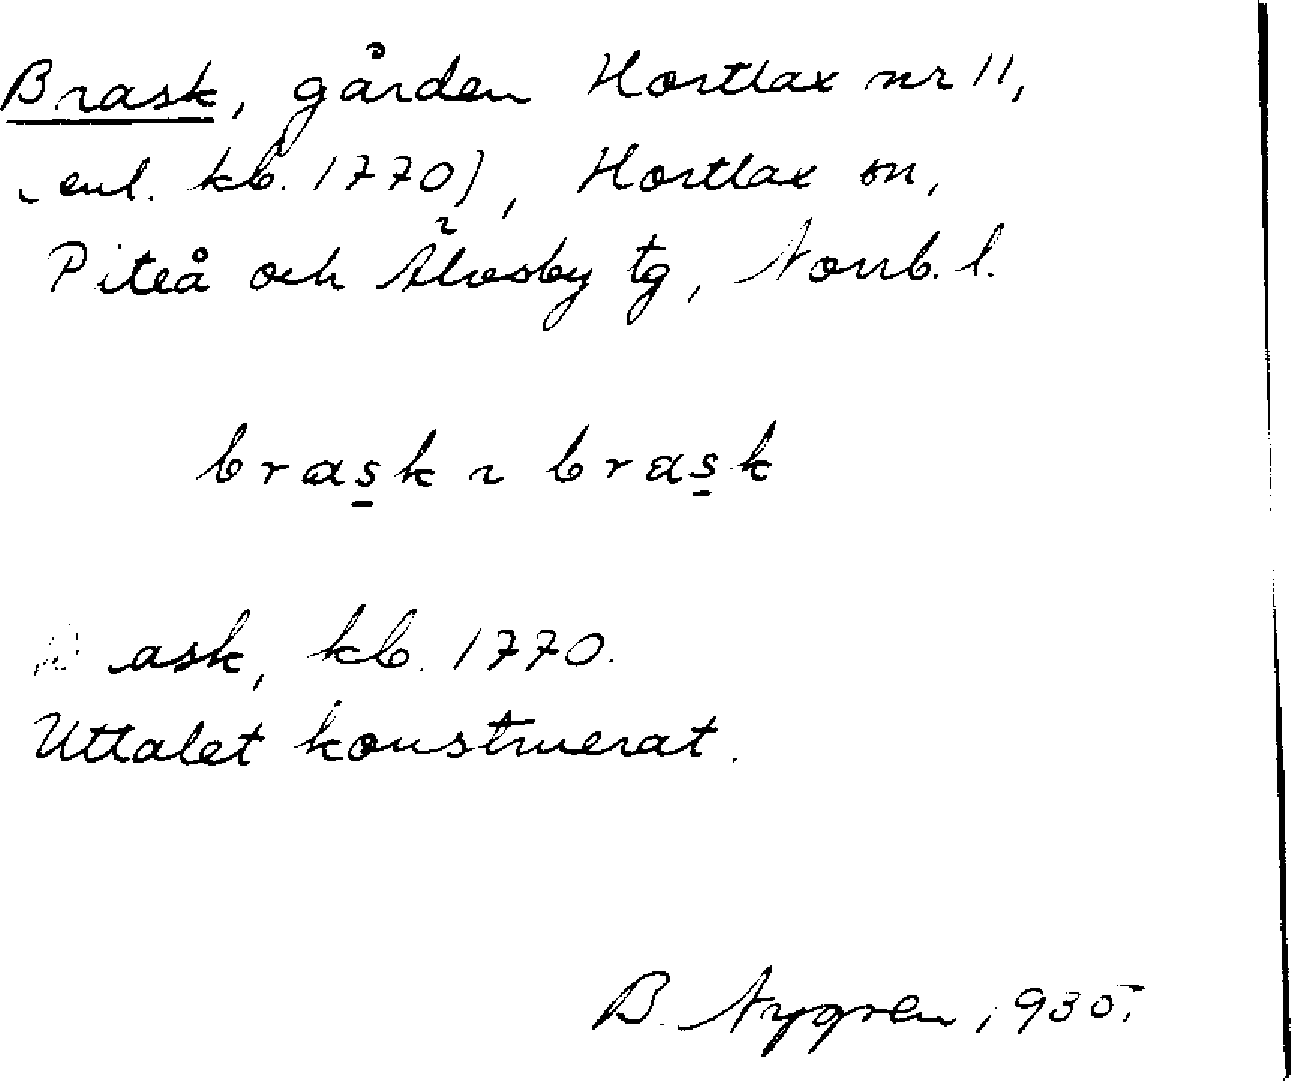 Brask, gården Hortlax nr 11,
(enl. kb. 1770), Hortlax sn,
Piteå och Älvsby tg, Norrb. l.
bras̱k ~ bras̱k
Brask, kb. 1770.
Uttalet konstruerat.
B. Nygren, 1935.